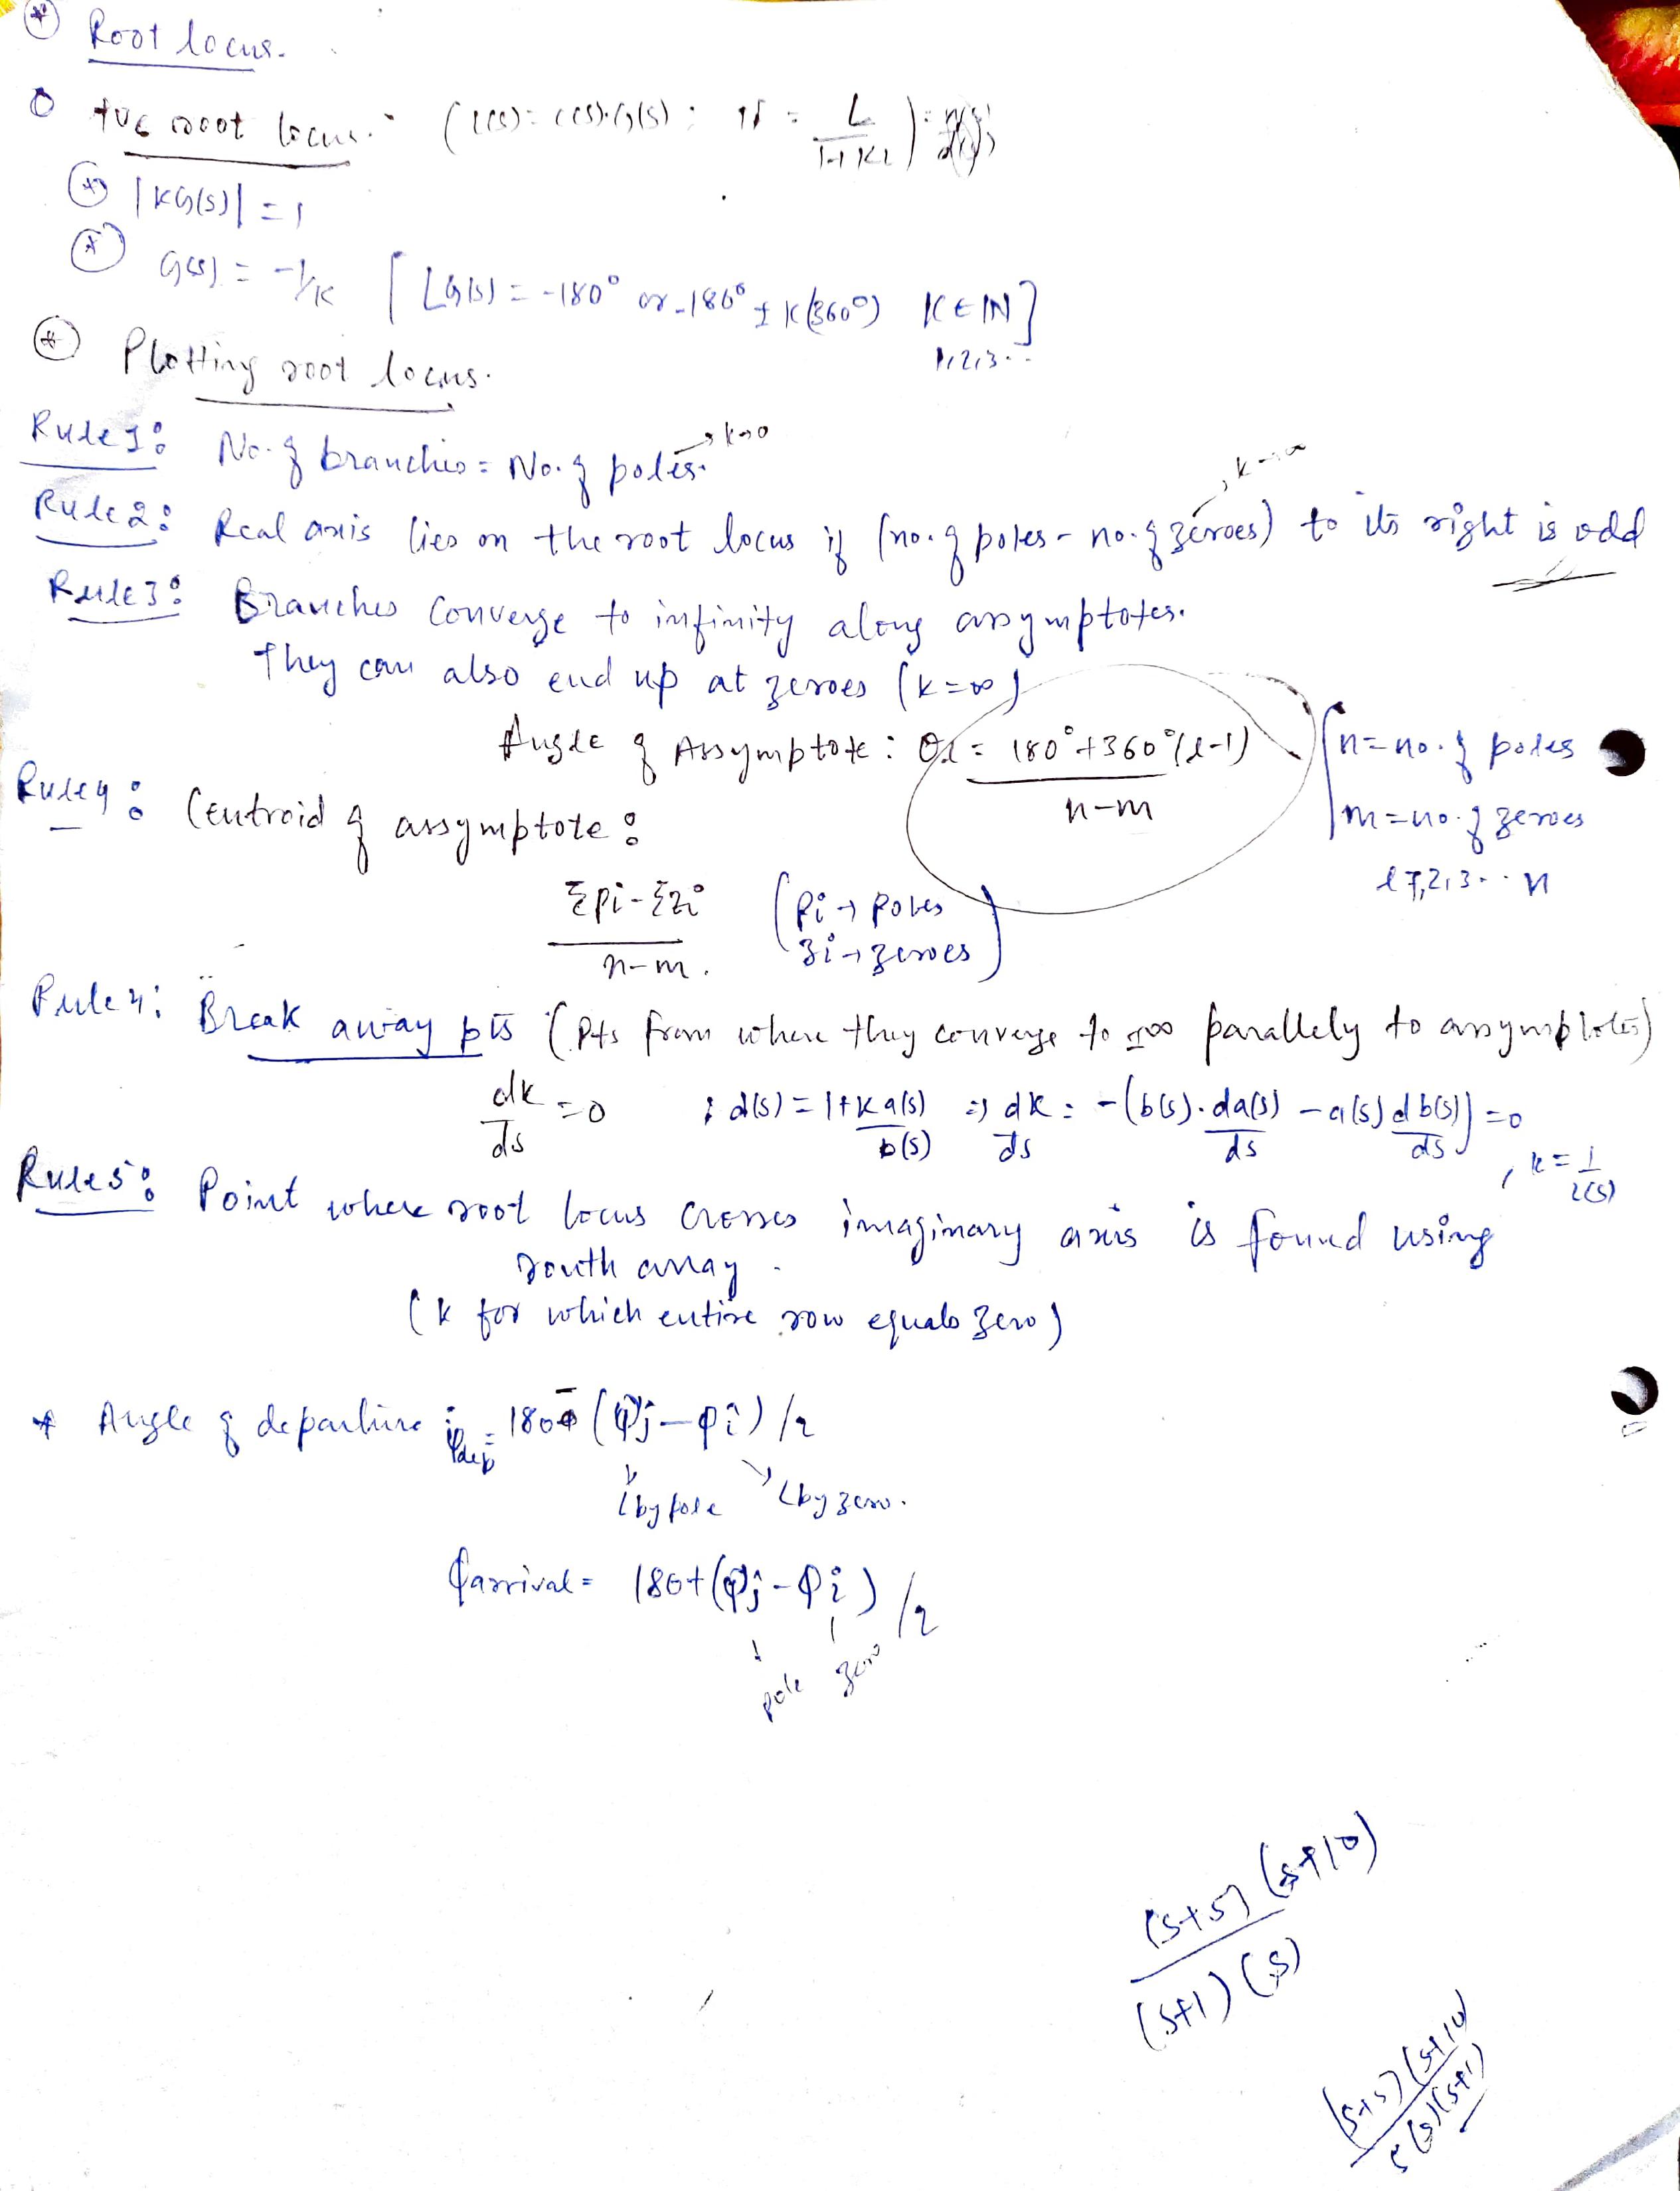 * Root locus.
o +ve root locus. (L(s) = C(s).G(s) ; = L / 1+KL) = n(s) / d(s)
* |KG(s)| = 1
* G(s) = -1/K [∠G(s) = -180° or -180° ± K(360°) K∈IN]
1,2,3..
* Plotting root locus.
→ k→0
Rule 1: No. of branches = No. of poles.
, k→∞
Rule 2: Real axis lies on the root locus if (no. of poles - no. of zeroes) to its right is odd
Rule 3: Branches converge to infinity along assymptotes.
They can also end up at zeroes (k=∞)
Angle of Assymptote: θl = 180°+360°(l-1) / n-m
n = no. of poles
m = no. of zeroes
l=1,2,3...n
Rule 4: Centroid of assymptote:
Σpi - Σzi / n-m. (pi → poles
zi → zeroes)
Rule 4: Break away pts (Pts from where they converge to ±∞ parallely to assymptotes)
dk/ds = 0 ; d(s) = 1+K a(s)/b(s) ⇒ dk/ds = -(b(s).da(s)/ds - a(s) db(s)/ds) = 0
, k = 1/L(s)
Rule 5: Point where root locus crosses imaginary axis is found using
routh array.
(k for which entire row equals zero)
* Angle of departure is φdep = 180 - (φj - φi)/2
∠ by pole ∠ by zero.
φarrival = 180 + (φj - φi)/2
pole zero
(s+5) (s+10)
(s+1) (s)
(s+5) (s+10)
(s) (s+1)